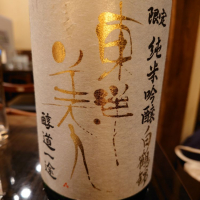 限定
純米吟醸 白鶴錦
東洋美人
醇道一途